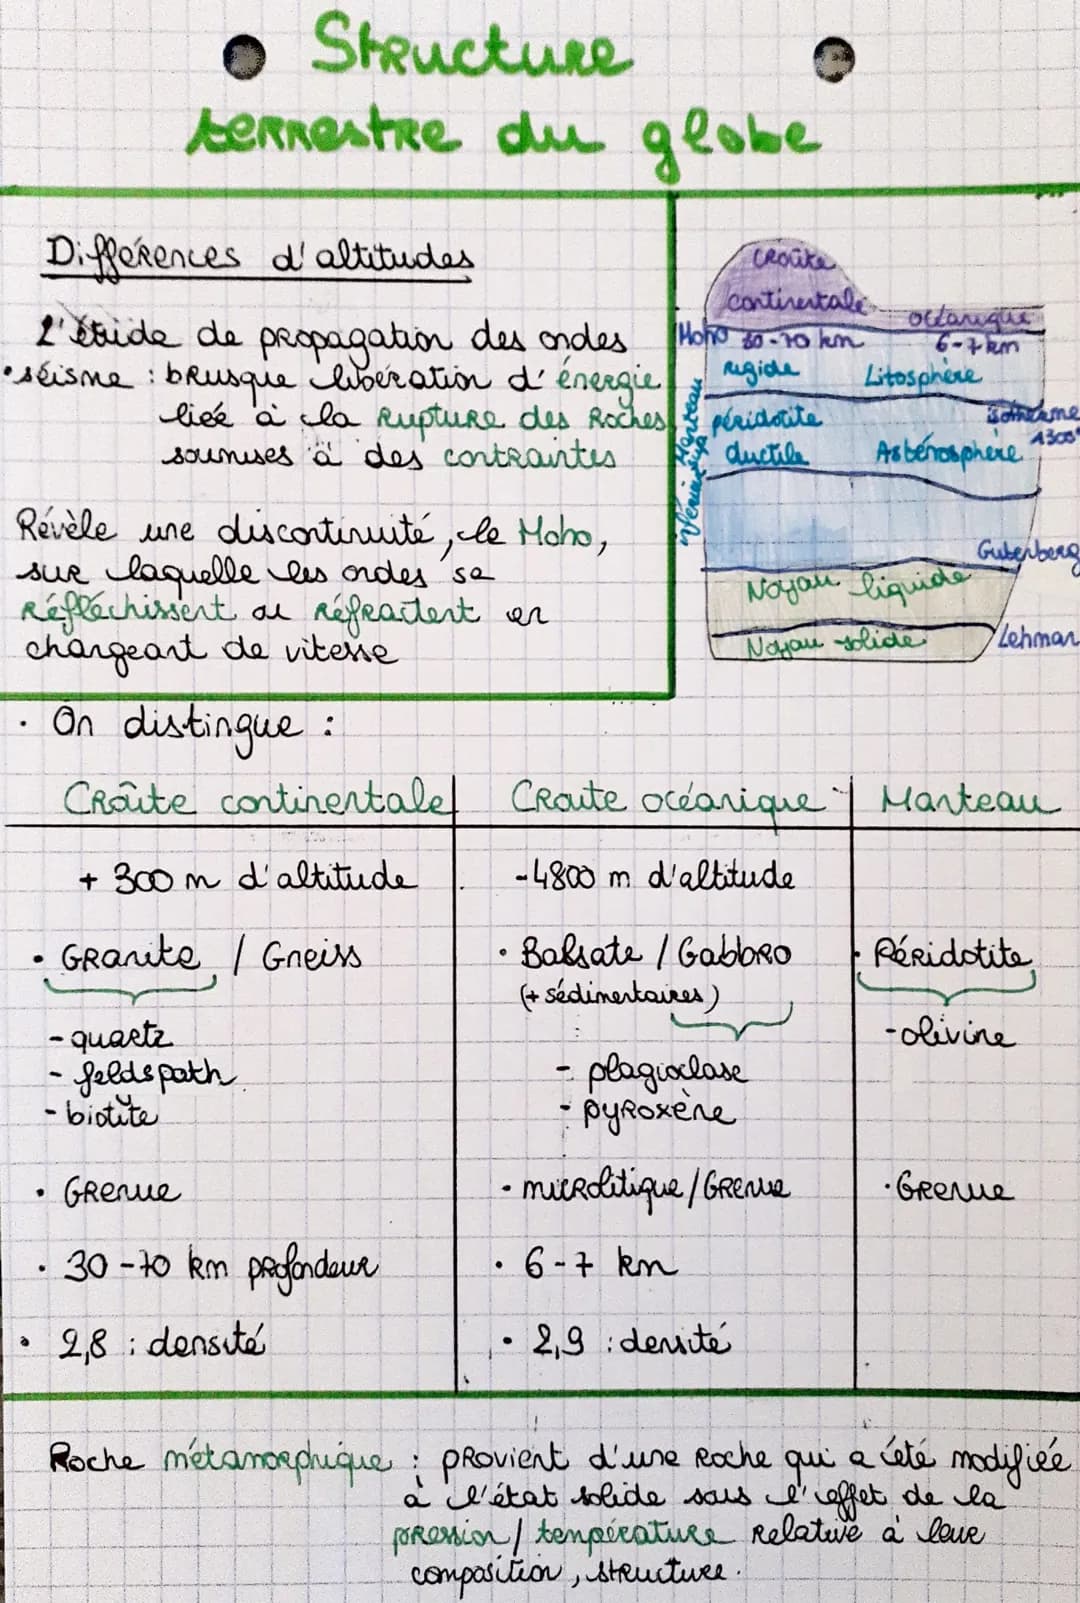 Structure
terrestre du globe
Différences d'altitudes
L'étude de propagation des ondes
• séisme : brusque libération d'énergie
liée à la rupture des roches
soumises à des contraintes
Révèle une discontinuité, le Moho,
sur laquelle les ondes se
réfléchissent ou réfractent en
changeant de vitesse
croûte
continentale
océanique
Moho 30-70 km
6-7 km
rigide
Litosphère
Manteau
inférieur
péridotite
isotherme
1300°
ductile
Asténosphère
Gutenberg
Noyau liquide
Lehman
Noyau solide
• On distingue :
Croûte continentale
Croute océanique
Manteau
+ 300 m d'altitude
-4800 m d'altitude
• Granite / Gneiss
• Balsate / Gabbro
(+ sédimentaires)
• Péridotite
- quartz
- feldspath
- biotite
- plagioclase
- pyroxène
- olivine
• Grenue
• microlitique / Grenue
• Grenue
• 30-70 km profondeur
• 6-7 km
• 2,8 : densité
• 2,9 : densité
Roche métamorphique : provient d'une roche qui a été modifiée
à l'état solide sous l'effet de la
pression / température relative à leur
composition, structure.